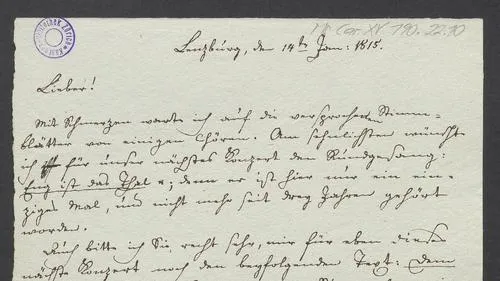 Ms Car XV 190. 22. 10
Lenzburg, den 14ten Jan: 1815.
Lieber!
Mit Schmerzen warte ich auf die versprochenen Stimm-
blätter von einigen Chören. Am sehnlichsten wünscht
ich für unser nächstes Konzert den Rundgesang:
Eng ist das Thal; denn er ist hier nur ein ein-
ziges Mal, und nicht mehr seit drey Jahren gehört
worden.
Auch bitte ich Sie recht sehr, mir für eben dieses
nächste Konzert noch den beyfolgenden Text: Dem